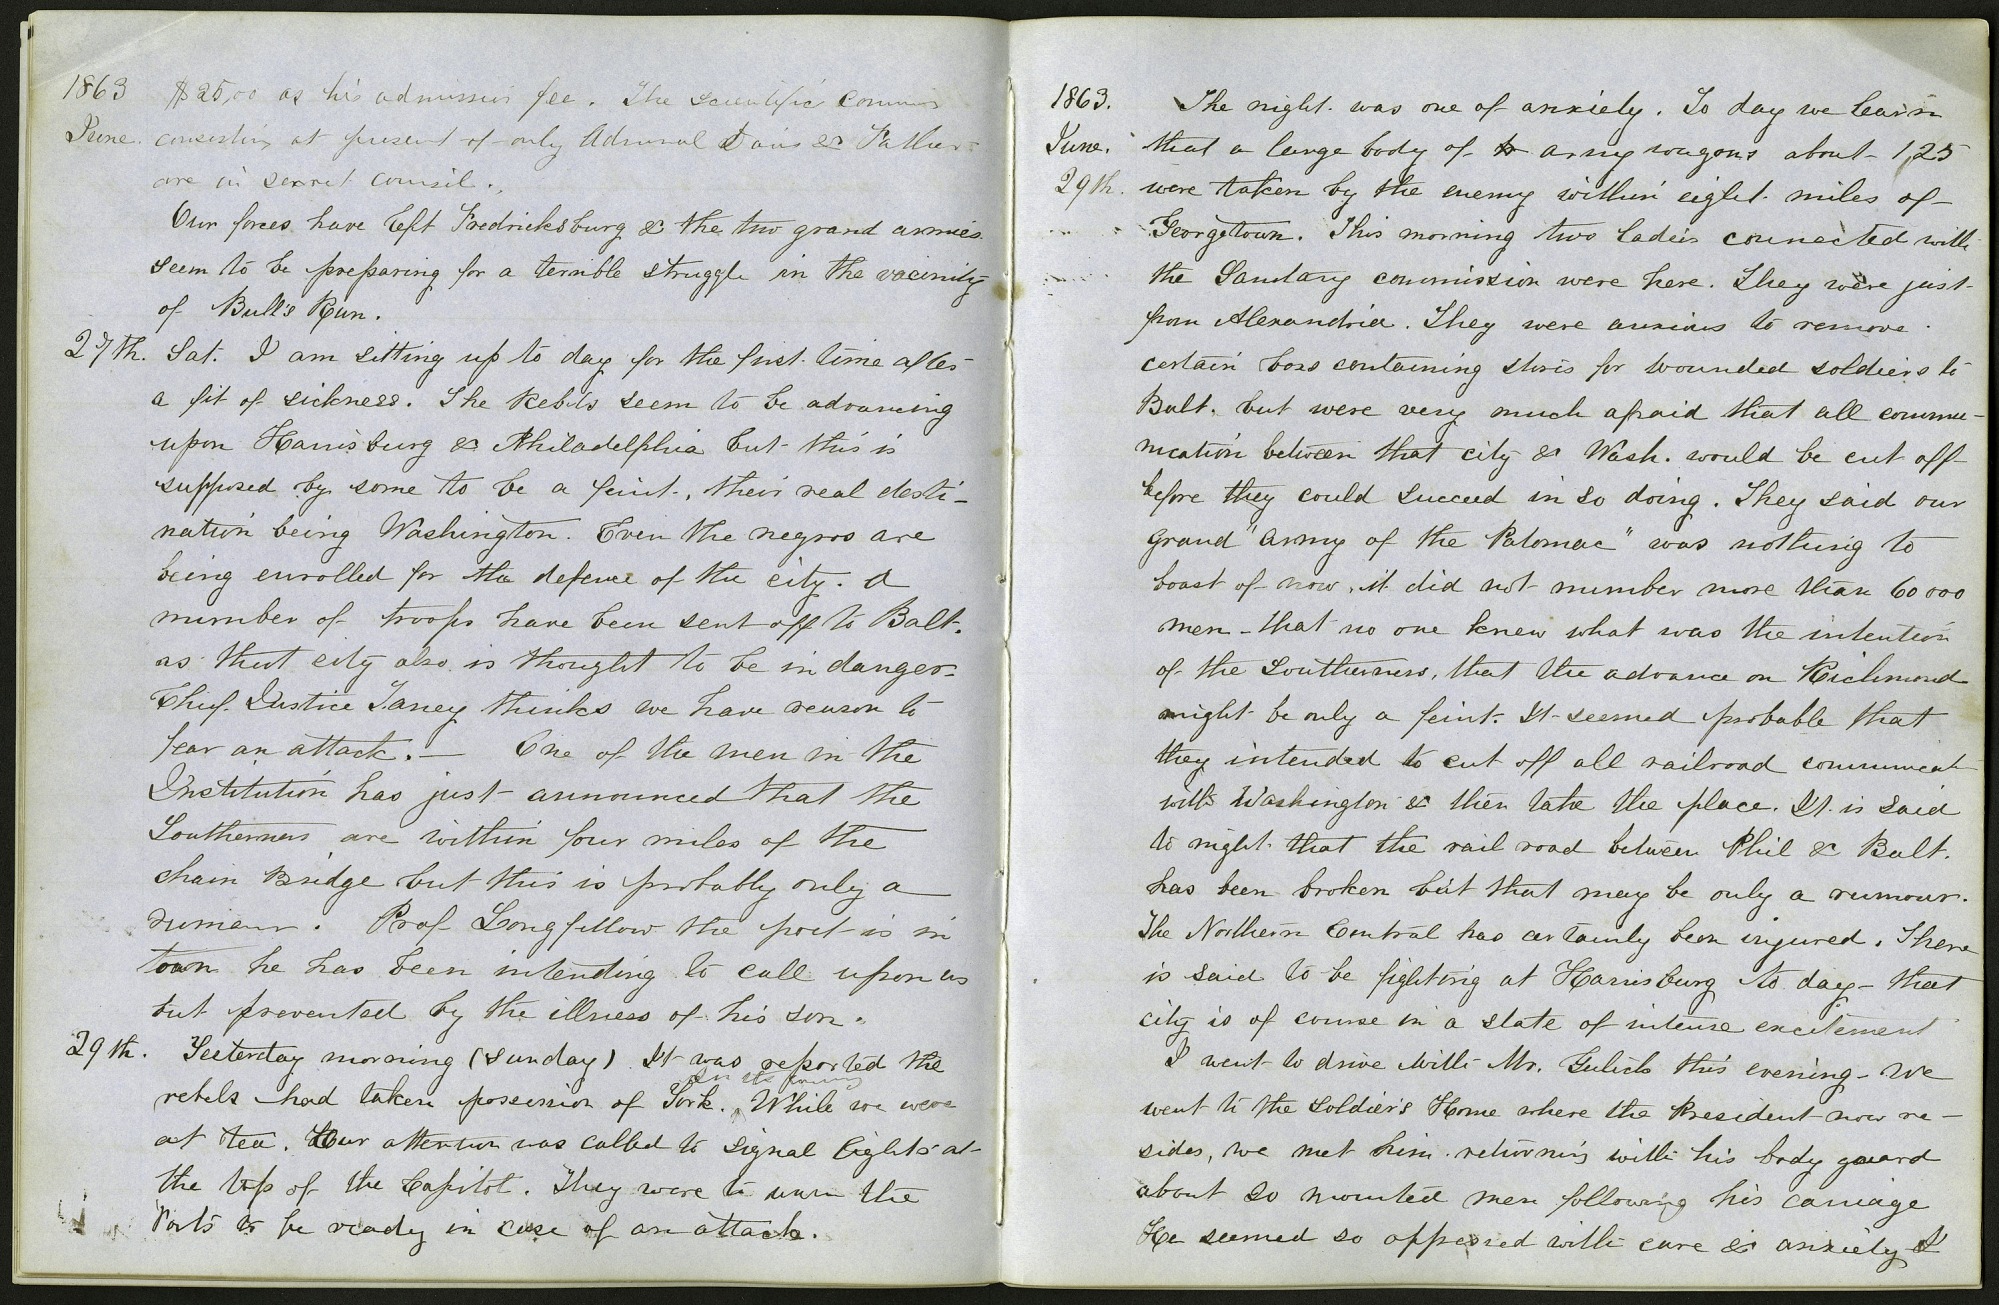 1863 $25,00 as his admission fee. The scientific commis
June. consisting at present of only Admiral Davis & Father
are in secret council.
Our forces have left Fredricksburg & the two grand armies
seem to be preparing for a terrible struggle in the vacinity
of Bull's Run.
27th. Sat. I am sitting up to day for the first time after
a fit of sickness. The Rebels seem to be advancing
upon Harrisburg & Philadelphia but this is
supposed by some to be a feint, their real desti-
nation being Washington. Even the negros are
being enrolled for the defence of the city. A
number of troops have been sent off to Balt.
as that city also is thought to be in danger.
Chief Justice Taney thinks we have reason to
fear an attack. — One of the men in the
Institution has just announced that the
Southerners are within four miles of the
chain Bridge but this is probably only a
rumour. Prof Longfellow the poet is in
town he has been intending to call upon us
but prevented by the illness of his son.
29th. Yesterday morning (Sunday) It was reported the
rebels had taken possession of York. In the evening While we were
at tea. Our attention was called to signal lights at
the top of the Capitol. They were to warn the
Forts to be ready in case of an attack.
1863. The night was one of anxiety. To day we learn
June. that a large body of army wagons about 125
29th. were taken by the enemy within eight miles of
Georgetown. This morning two ladies connected with
the Sanitary commission were here. They were just
from Alexandria. They were anxious to remove
certain boxs containing stores for wounded soldiers to
Balt. but were very much afraid that all commu-
nication between that city & Wash. would be cut off
before they could succeed in so doing. They said our
grand "army of the Potomac" was nothing to
boast of now, it did not number more than 60000
men - that no one knew what was the intention
of the Southerners, that the advance on Richmond
might be only a feint. It seemed probable that
they intended to cut off all railroad communicat
with Washington & then take the place. It is said
to night that the rail road between Phil & Balt.
has been broken but that may be only a rumour.
The Northern Central has certainly been injured. There
is said to be fighting at Harrisburg to day - that
city is of course in a state of intense excitement
I went to drive with Mr. Gulick this evening - we
went to the Soldier's Home where the President now re-
sides, we met him returning with his body guard
about 20 mounted men following his carriage
He seemed so oppressed with care & anxiety I